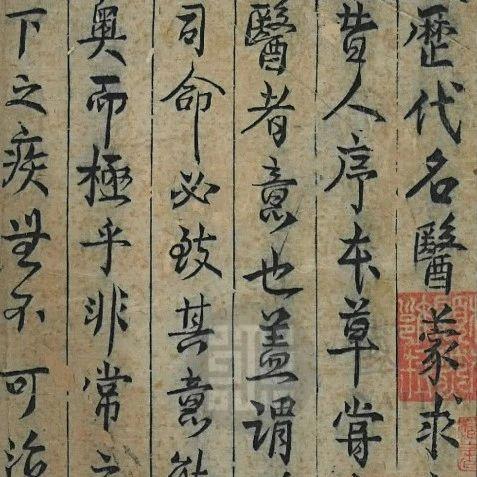 歷代名醫蒙求
昔人序本草嘗
醫者意也蓋謂
司命必致其意
奧而極乎非常之
下之疾無不可治